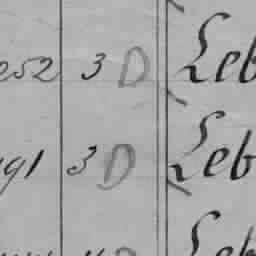 252 3 D Leb
91 3 D Leb
Leb